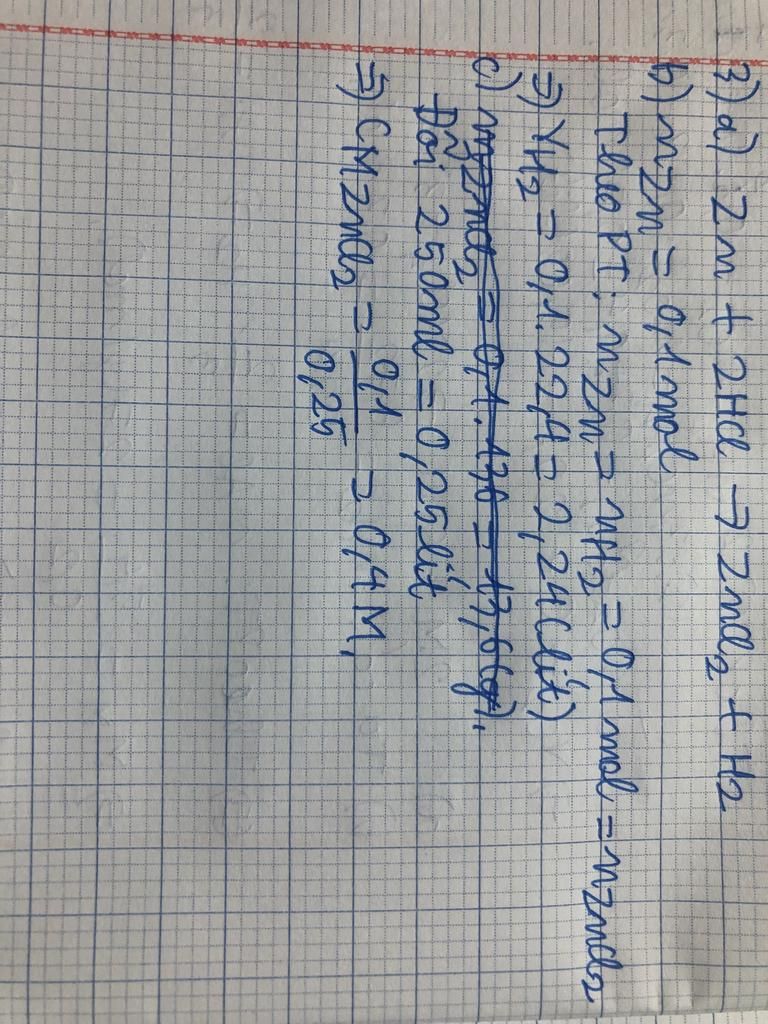 3) a) Zn + 2HCl → ZnCl₂ + H₂
b) nZn = 0,1 mol
Theo PT: nZn = nH₂ = 0,1 mol = nZnCl₂
⇒) VH₂ = 0,1. 22,4 = 2,24 (lít)
c) mZnCl₂ = 0,1. 136 = 13,6 (g).
Đổi 250ml = 0,25 lít
⇒) CMZnCl₂ = 0,1 / 0,25 = 0,4 M.